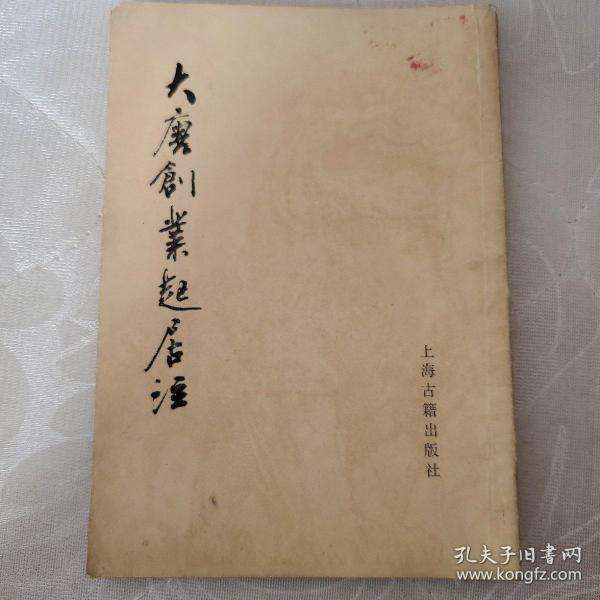 大唐創業起居注
上海古籍出版社
孔夫子旧書网
www.kongfz.com